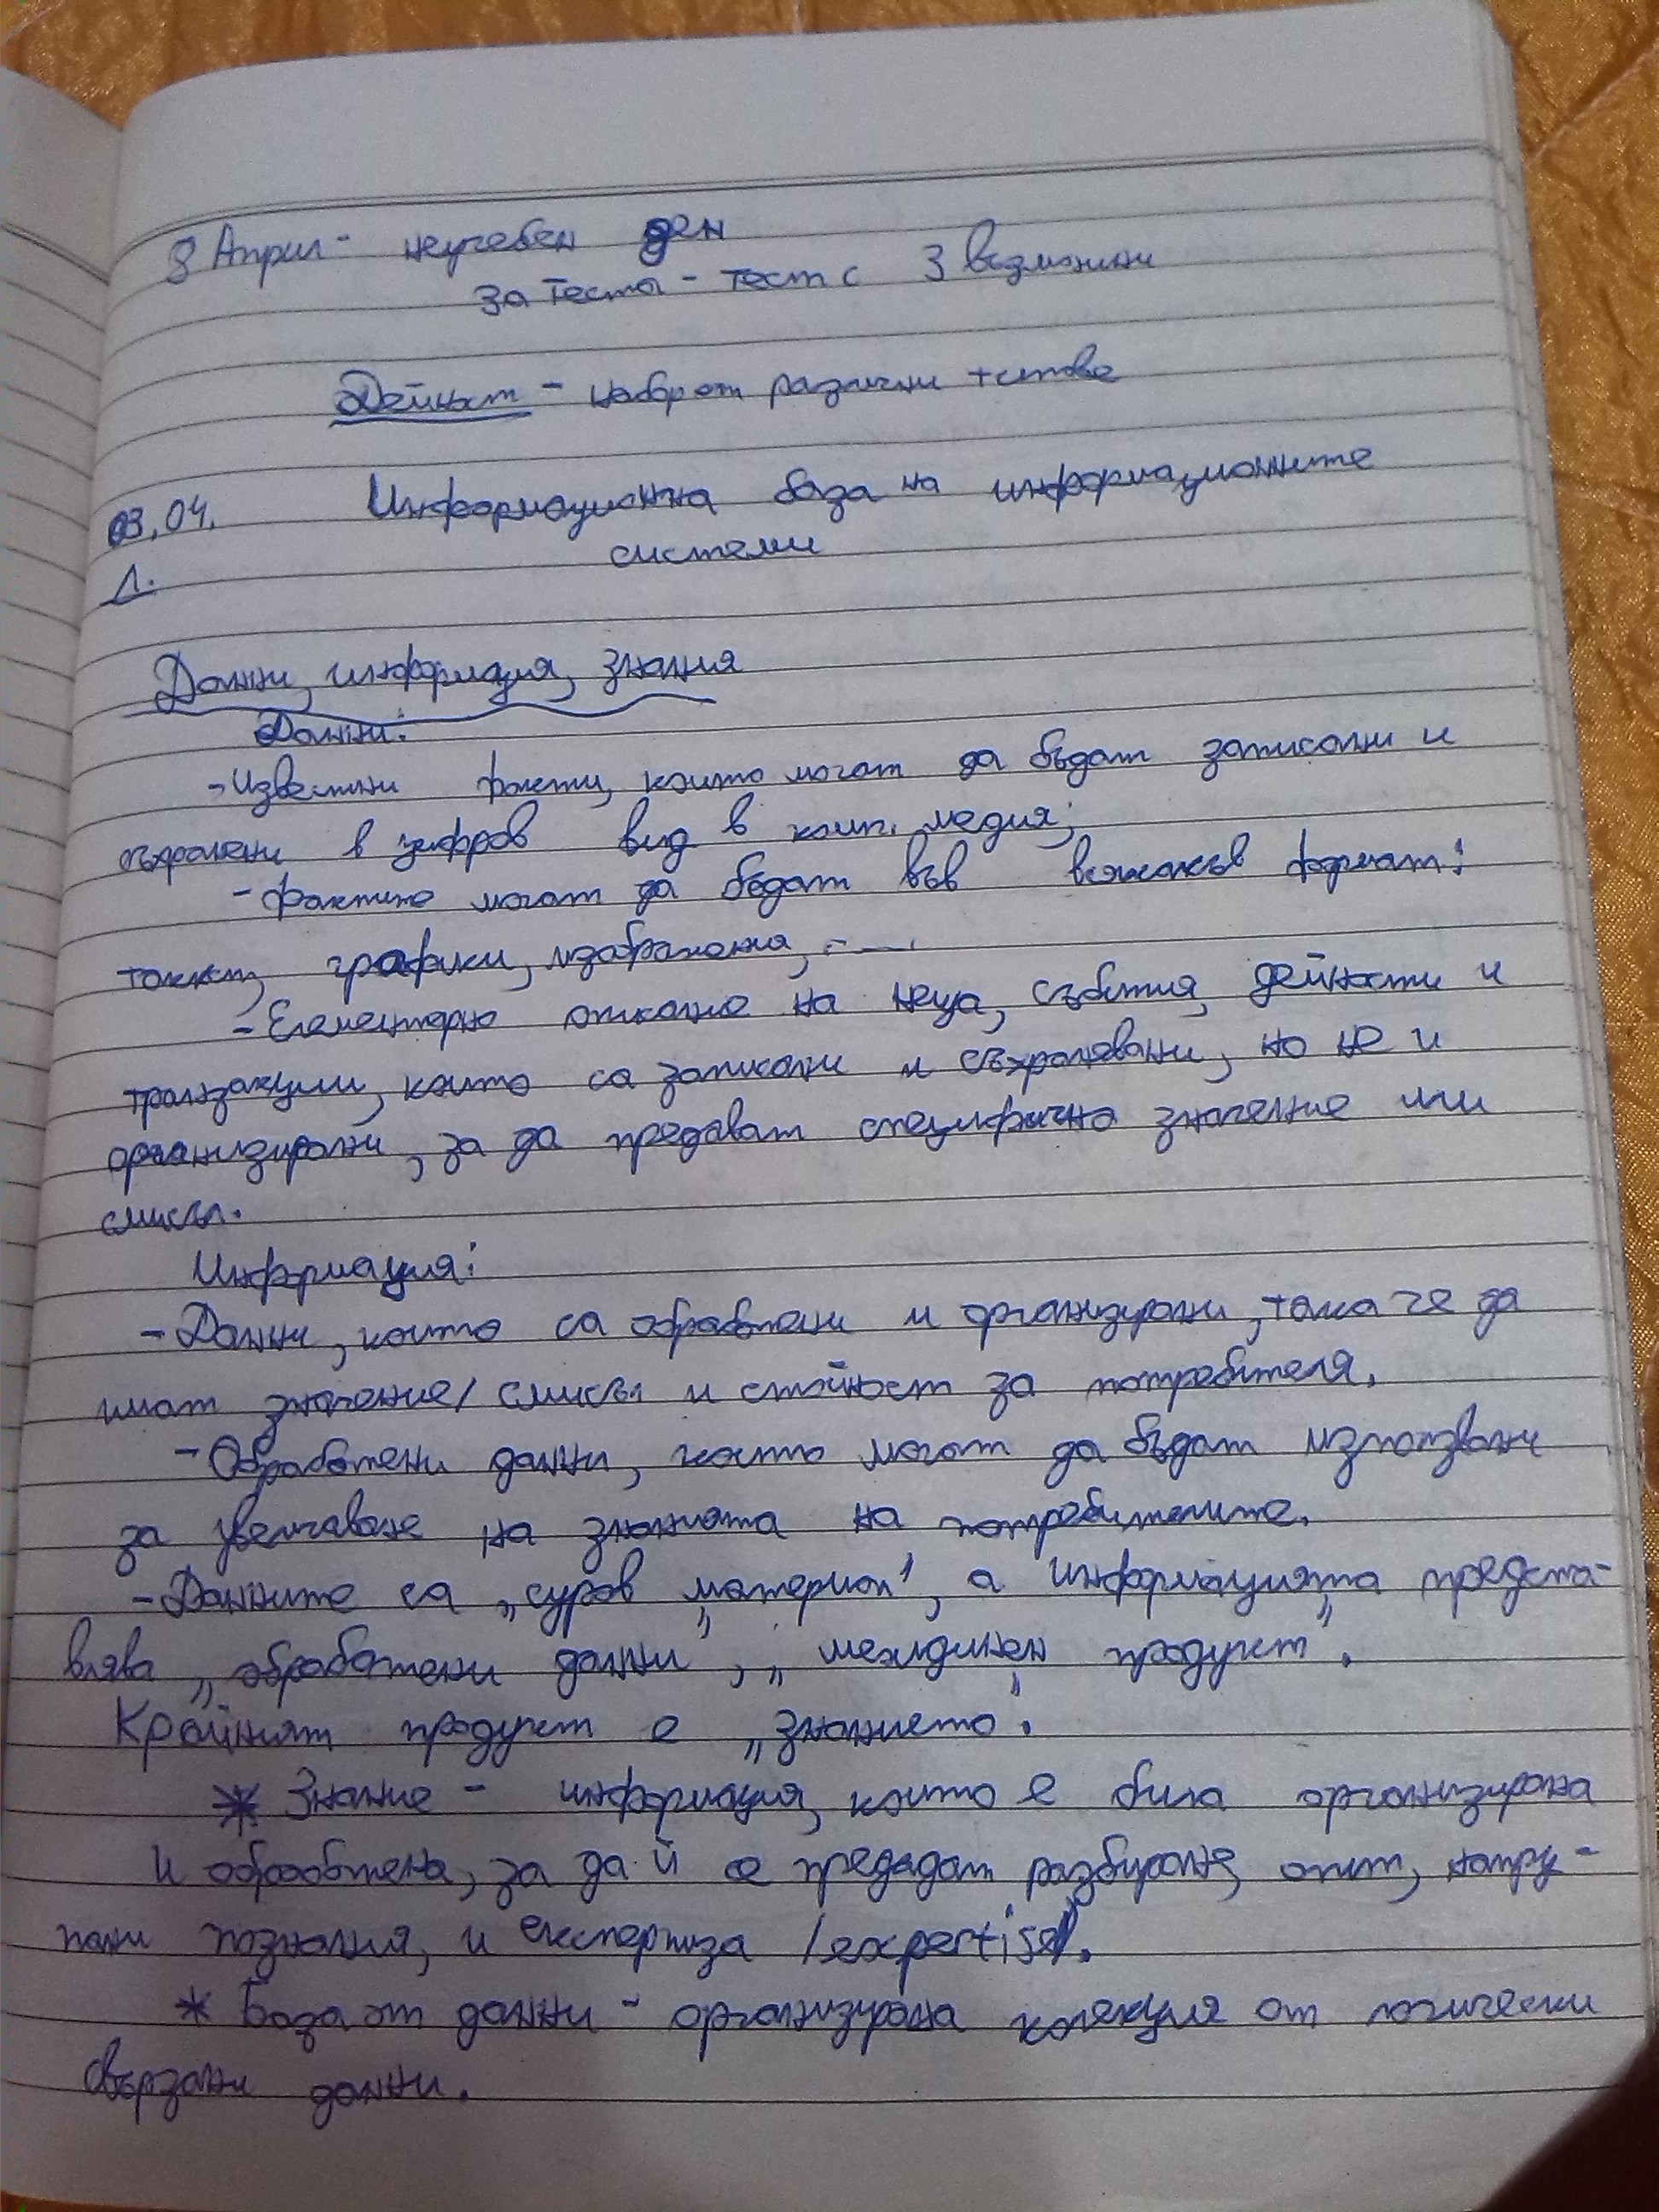 8 Април - неучебен ден
за теста - тест с 3 възможни
Дейност - набор от различни тестове
03.04. Информационна база на информационните
Л. системи
Данни, информация, знания
Данни:
- Известни факти, които могат да бъдат записани и
съхранени в цифров вид в комп. медия;
- Фактите могат да бъдат във всякакъв формат:
текст, графики, изображения, ...
- Елементарно описание на неща, събития, дейности и
транзакции, които са записани и съхранявани, но не и
организирани, за да предават специфично значение или
смисъл.
Информация:
- Данни, които са обработени и организирани, така че да
имат значение/смисъл и стойност за потребителя.
- Обработени данни, които могат да бъдат използвани
за увеличаване на знанията на потребителите.
- Данните са „суров материал", а информацията предста-
влява „обработени данни", „междинен продукт".
Крайният продукт е „знанието".
* Знание - информация, която е била организирана
и обработена, за да й се предадат разбиране, опит, натру-
пани познания, и експертиза /expertise/.
* База от данни - организирана колекция от логически
свързани данни.